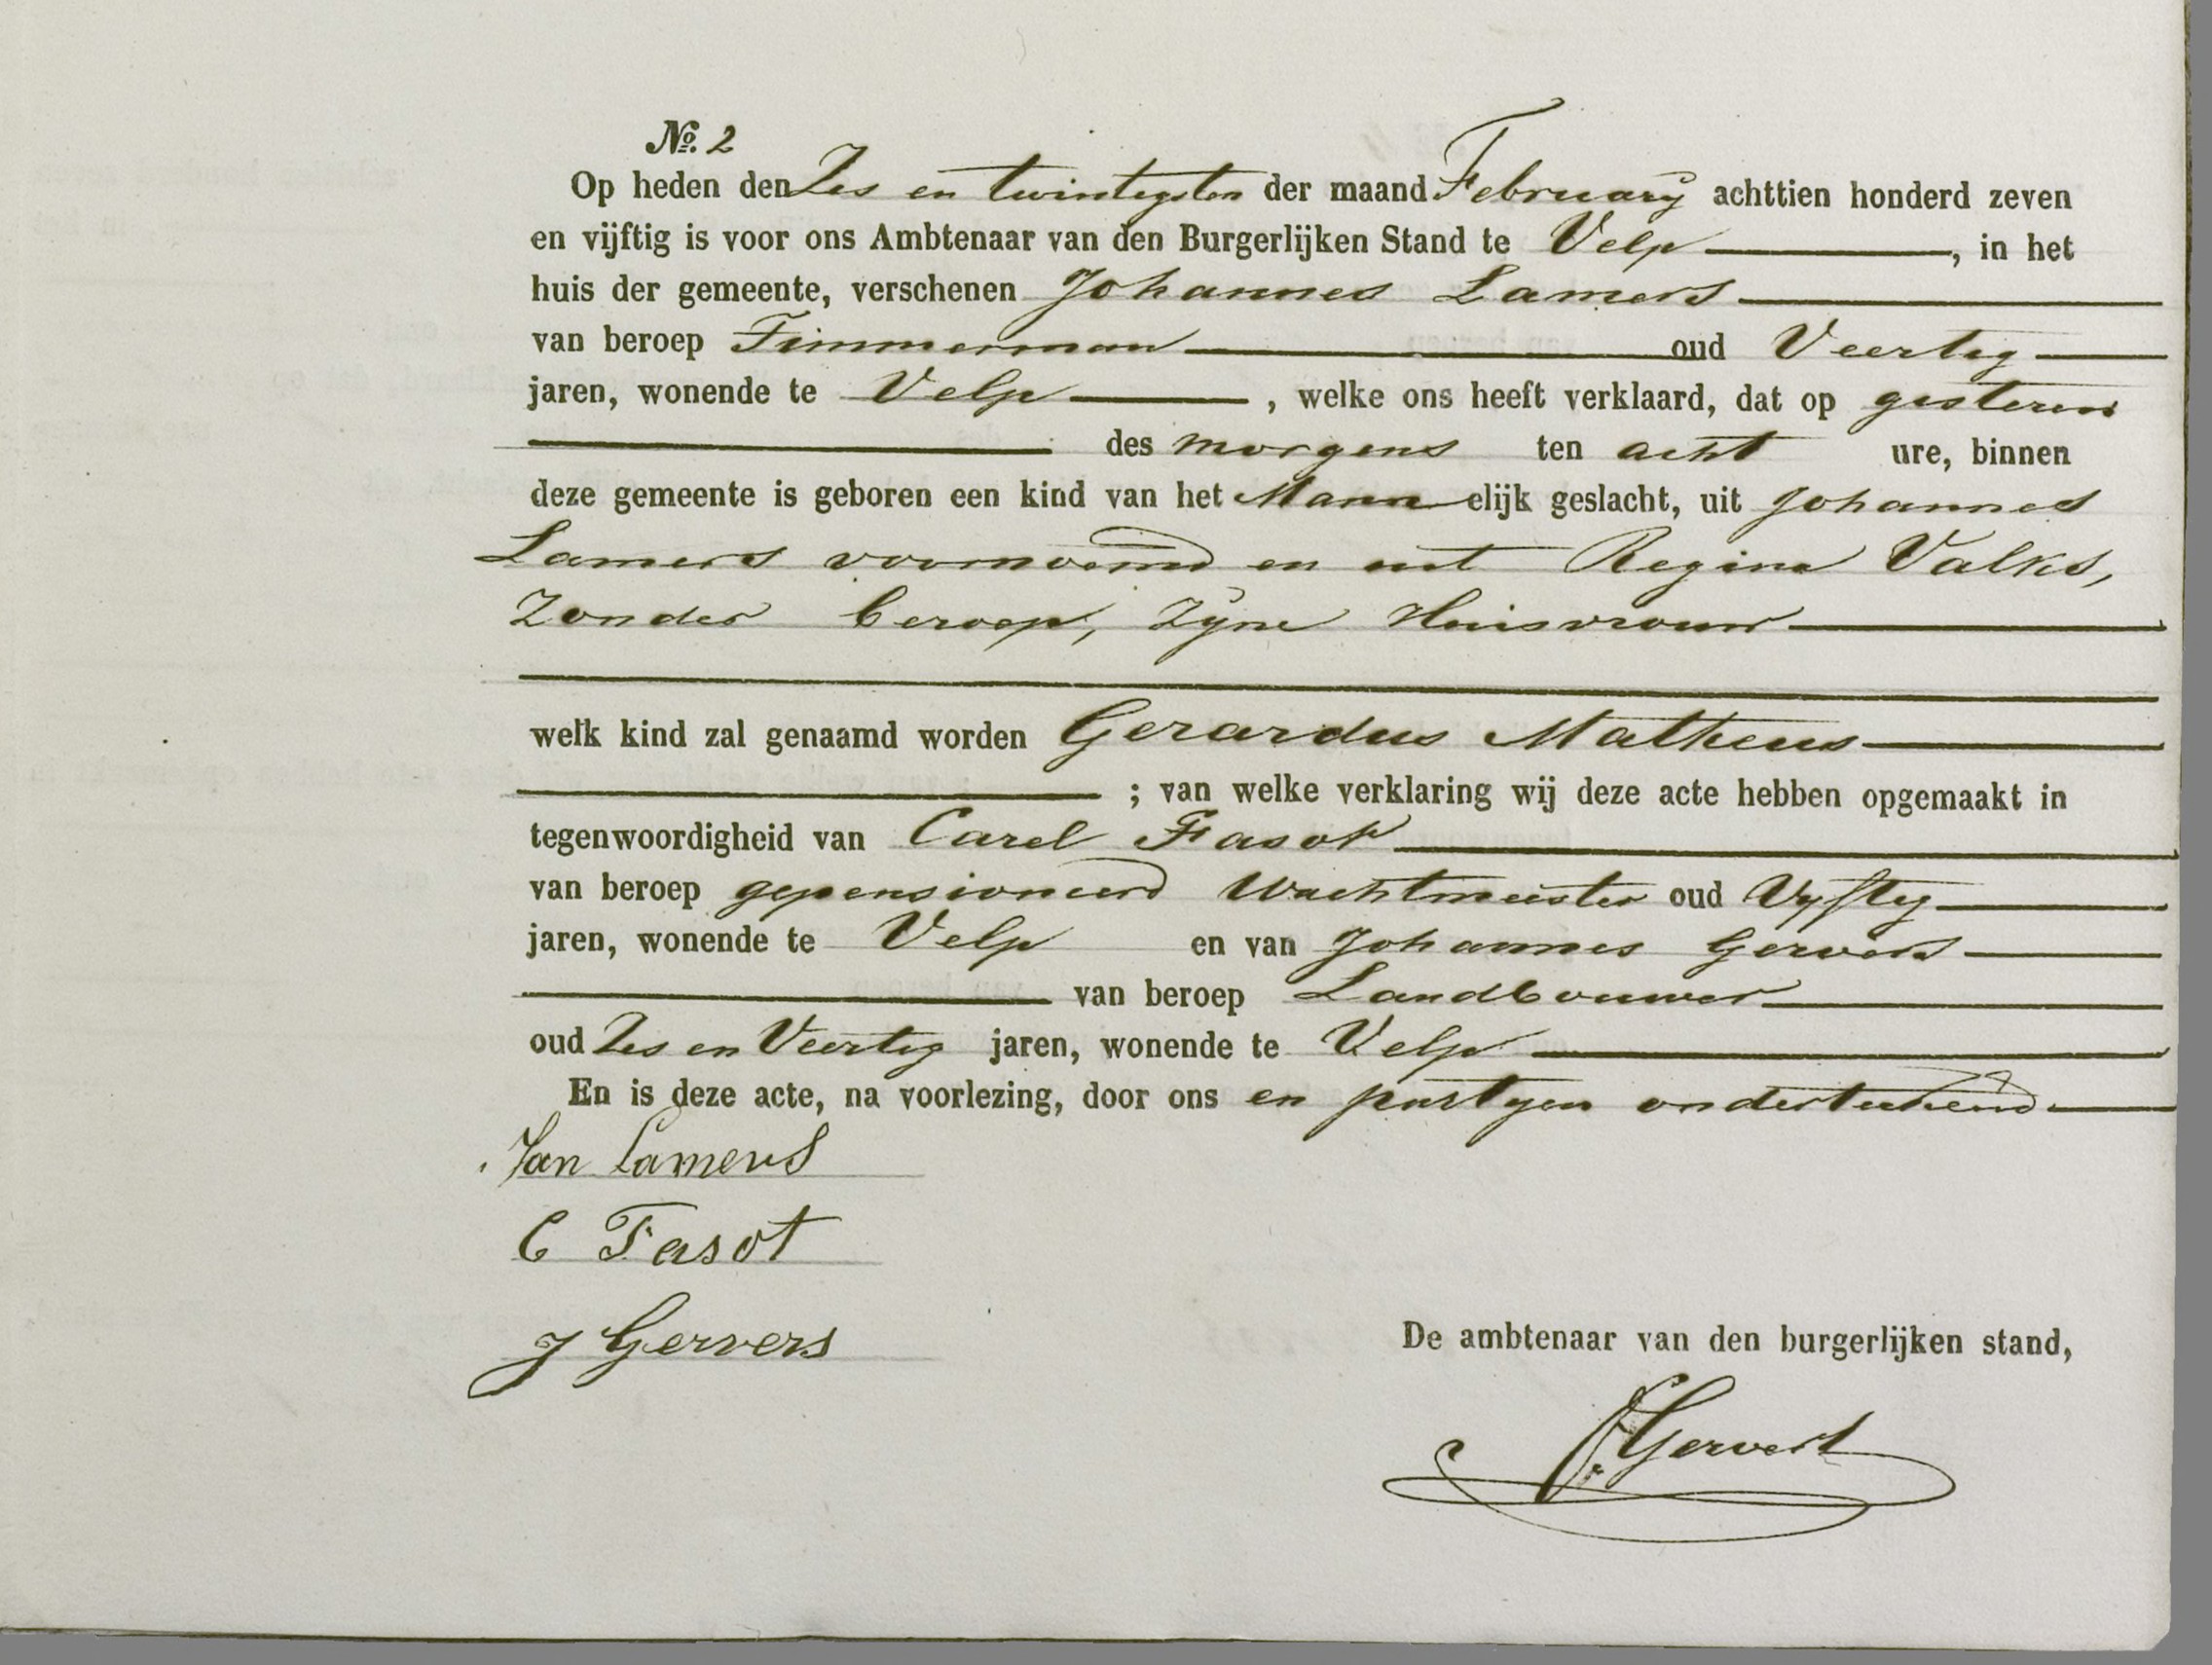 No. 2
Op heden den Zes en twintigsten der maand February achttien honderd zeven
en vijftig is voor ons Ambtenaar van den Burgerlijken Stand te Velp, in het
huis der gemeente, verschenen Johannes Lamers
van beroep Timmerman oud Veertig
jaren, wonende te Velp, welke ons heeft verklaard, dat op gisteren
des morgens ten acht ure, binnen
deze gemeente is geboren een kind van het Mannelijk geslacht, uit Johannes
Lamers voornoemd en uit Regina Valks,
Zonder beroep, Zyne Huisvrouw
welk kind zal genaamd worden Gerardus Matheus
; van welke verklaring wij deze acte hebben opgemaakt in
tegenwoordigheid van Carel Fasot
van beroep gepensioneerd Wachtmeester oud Vyftig
jaren, wonende te Velp en van Johannes Gervers
van beroep Landbouwer
oud Zes en Veertig jaren, wonende te Velp
En is deze acte, na voorlezing, door ons en partyen onderteekend
Jan Lamers
C Fasot
J Gervers
De ambtenaar van den burgerlijken stand,
Gervers